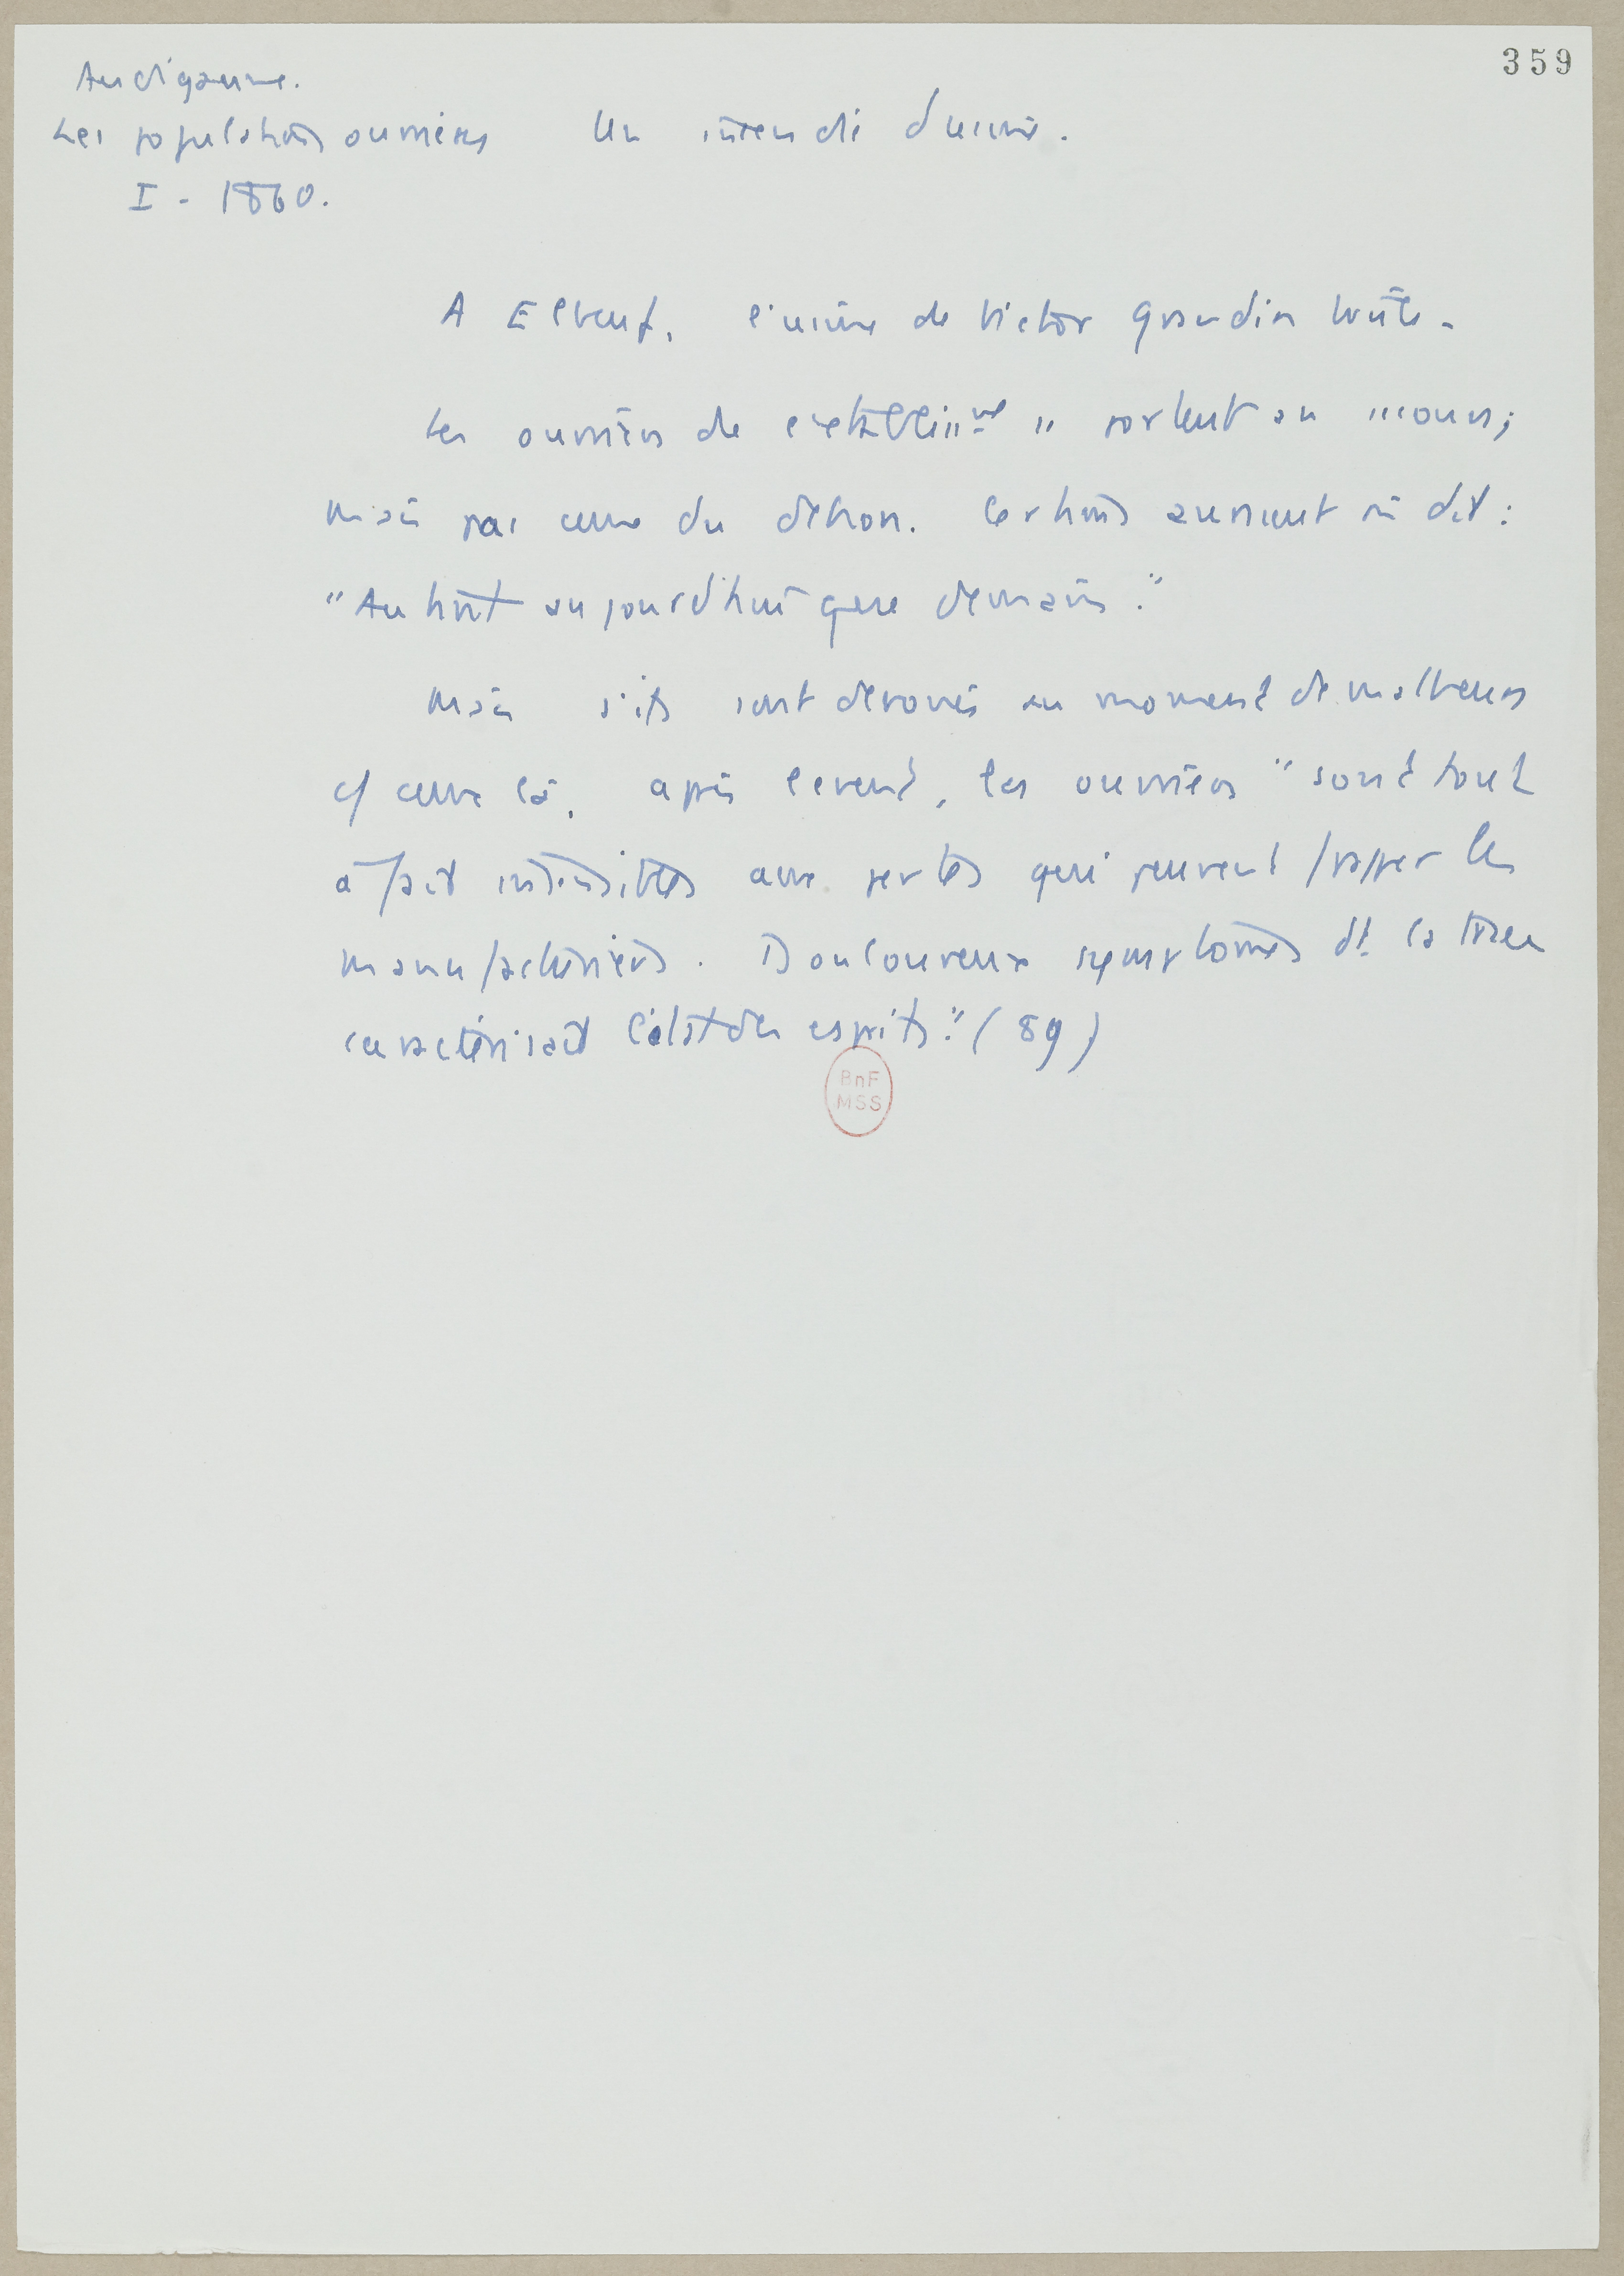 359
Audiganne.
Les populations ouvrières Un incendie d'usine.
I - 1860.
A Elbeuf, l'usine de Victor Grandin brûle.
Les ouvriers de l'établiss^nt "portent au secours;
mais pas ceux du dehors. Certains auraient dit:
"Autant aujourd'hui que demain."
Mais s'ils sont dévoués au moment de malheurs
c/ ceux là, après l'event, les ouvriers "sont tout
à fait insensibles aux pertes qui peuvent frapper les
manufacturiers. Douloureux symptômes dt la trace
caractérisait l'état des esprits." (89)
BnF
MSS